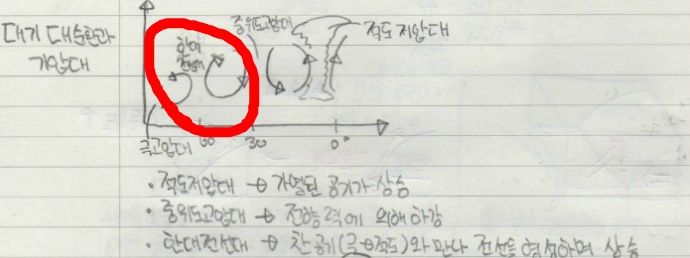 대기 대순환과
기압대
한대
전선대
중위도고압대
적도 저압대
극고압대 60 30 0°
· 적도저압대 → 가열된 공기가 상승
· 중위도고압대 → 전향력에 의해 하강
· 한대전선대 → 찬 공기(극→적도)와 만나 전선을 형성하며 상승